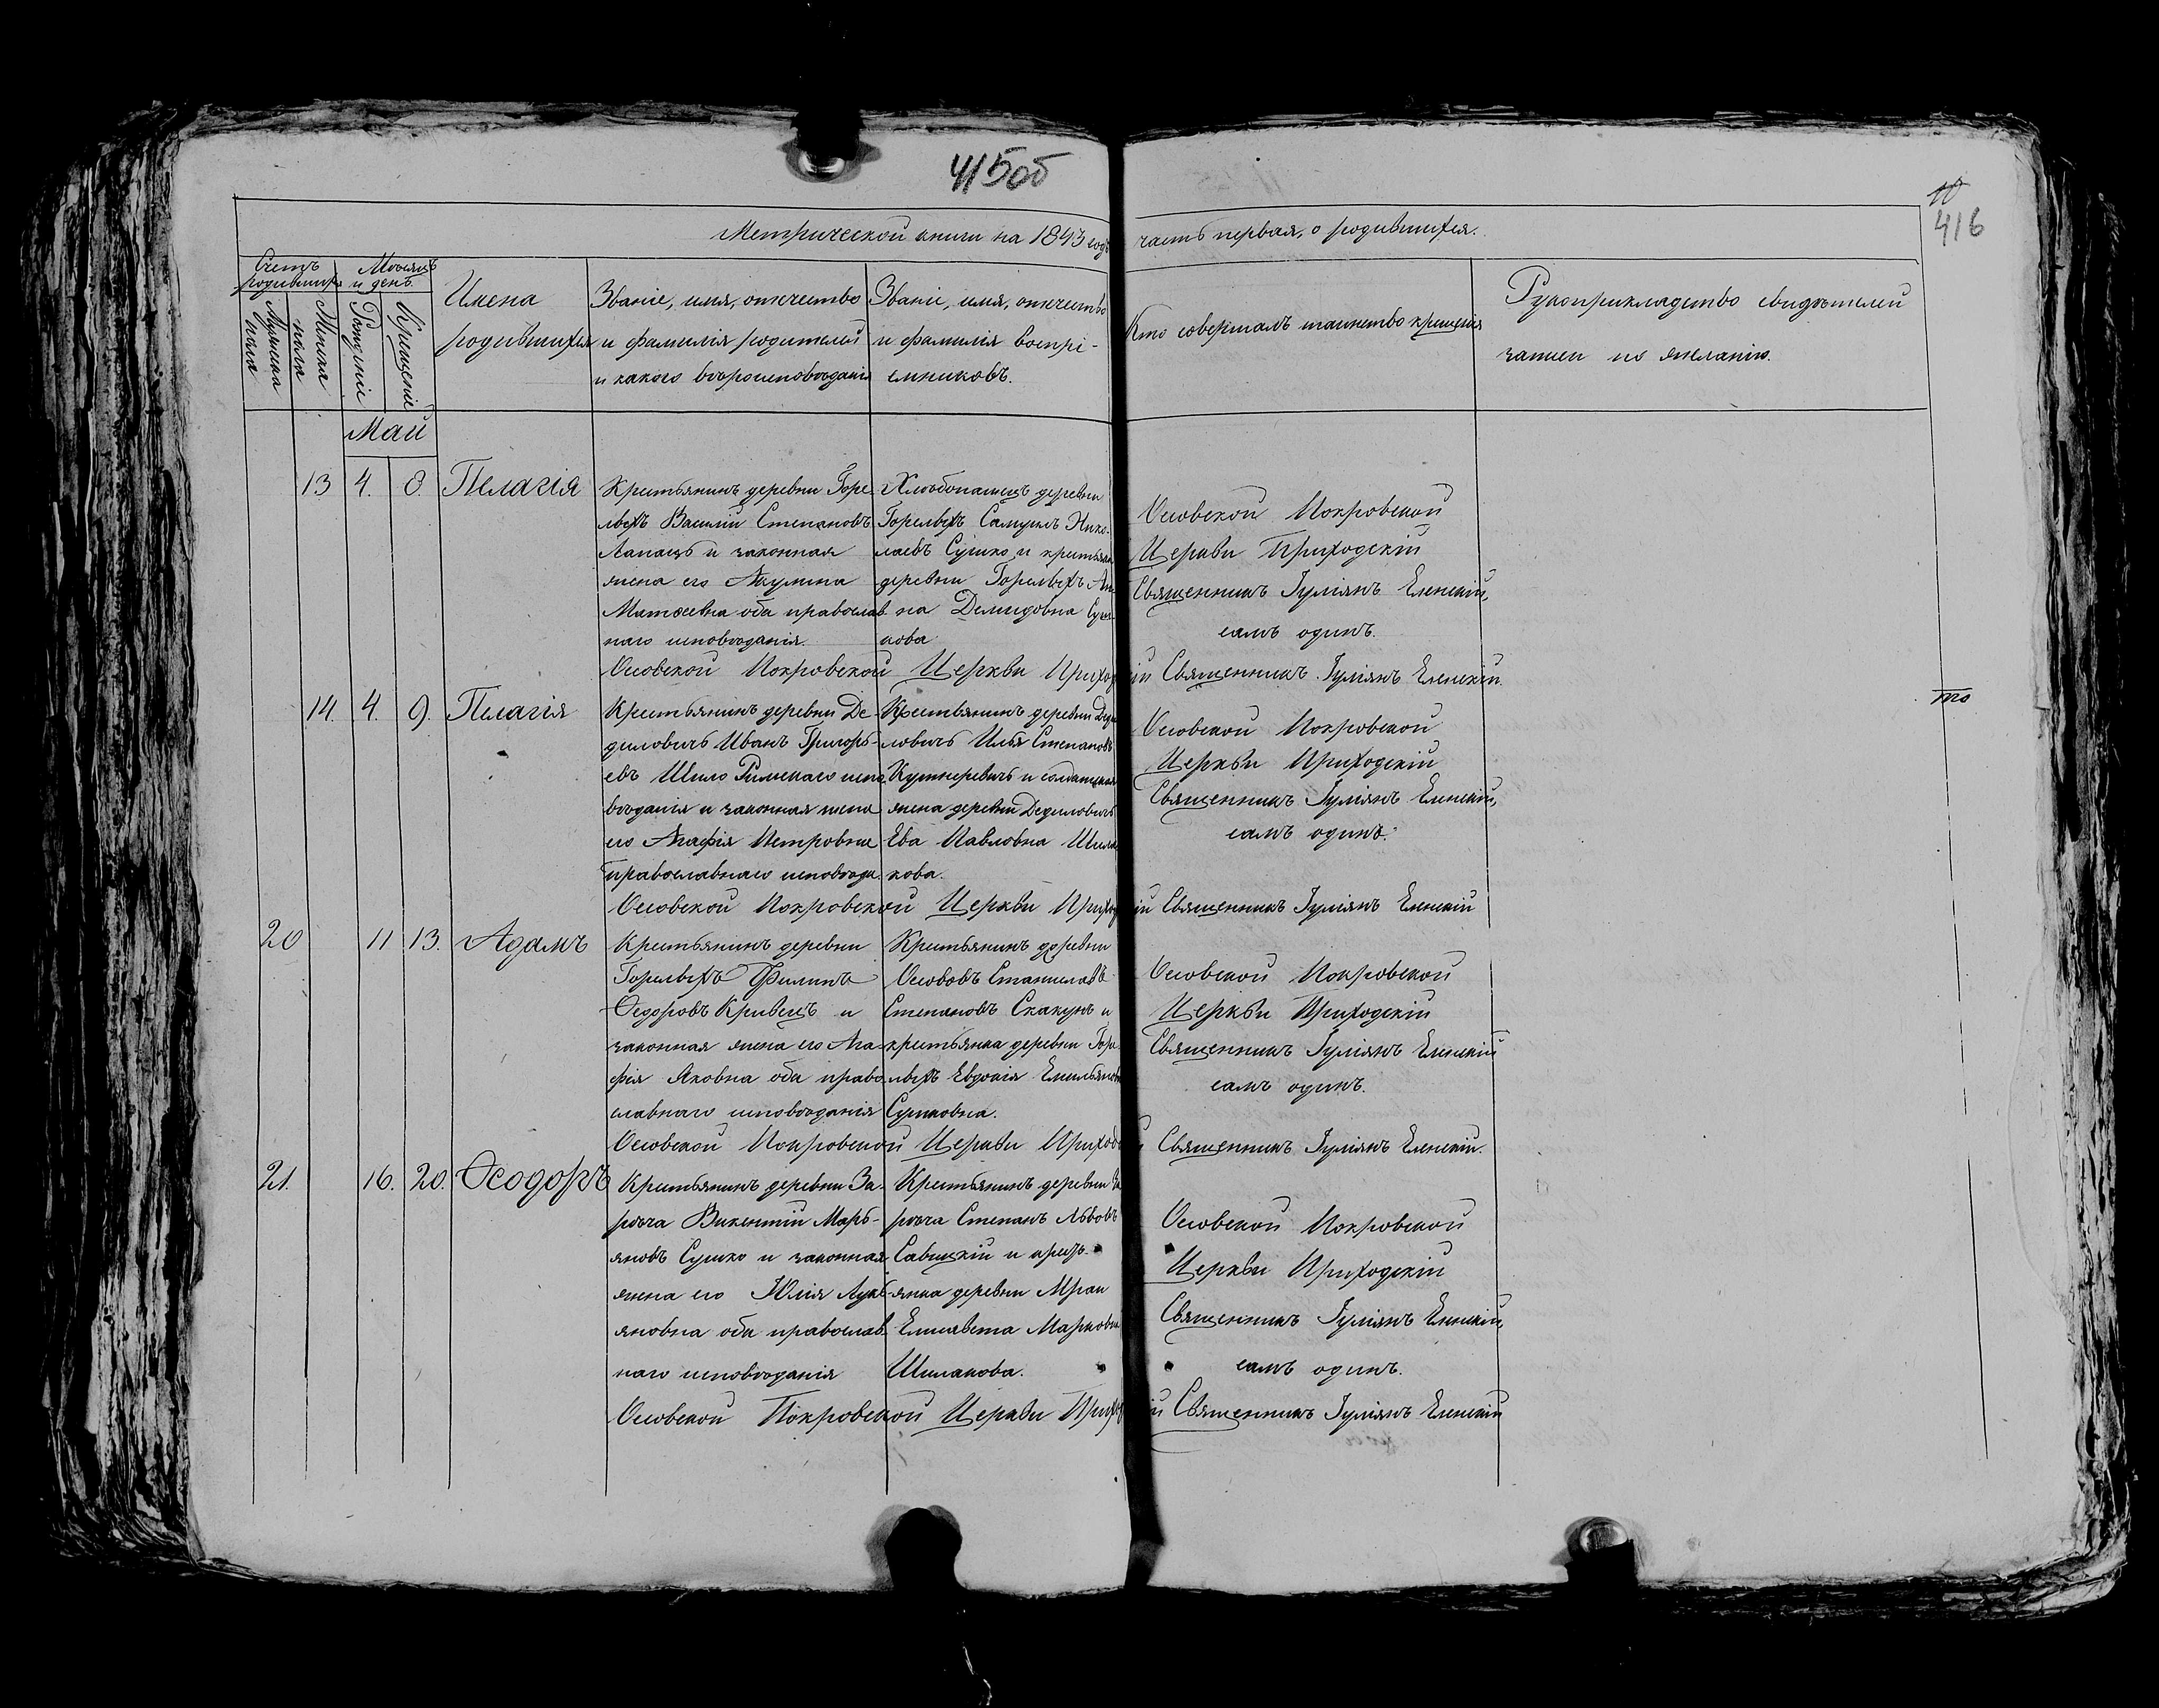 415об
10
416
Метрической книги на 1843 годъ часть первая, о родившихся.
Счетъ родившихся
Мужеска пола
Женска пола
Мѣсяцъ и день
Рожденіе
Крещеніе
Имена
родившихся
Званіе, имя, отчество
и фамилія родителей
и какого вѣроисповѣданія
Званіе, имя, отчество
и фамилія воспрі-
емниковъ.
Кто совершалъ таинство крещенія
Рукоприкладство свидѣтелей
записи по желанію.
Май
13 4. 8. Пелагія
Крестьянинъ деревни Горе-
лыхъ Василій Степановъ
Лапацъ и законная
жена его Акулина
Матѳеевна оба православ
наго исповѣданія.
Хлѣбопашецъ деревни
Горелыхъ Самуилъ Нико-
лаевъ Сушко и крестьянка
деревни Горелыхъ Ан
на Демидовна Суш
кова
Осовской Покровской
Церкви Приходскій
Священникъ Іуліянъ Еленскій,
самъ одинъ.
Осовской Покровской Церкви Приходскій Священникъ Іуліянъ Еленскій.
14. 4. 9. Пелагія
Крестьянинъ деревни Де-
диловичъ Иванъ Григорь-
евъ Шило Римскаго испо
вѣданія и законная жена
его Агафія Петровна
православнаго исповѣда.
Крестьянинъ деревни Деди
ловичъ Илья Степановъ
Кушнеревичъ и солдатская
жена деревни Дедиловичъ
Ева Павловна Шила
кова.
Осовской Покровской
Церкви Приходскій
Священникъ Іуліянъ Еленскій,
самъ одинъ.
Осовской Покровской Церкви Приходскій Священникъ Іуліянъ Еленскій
20 11 13. Адамъ
Крестьянинъ деревни
Горелыхъ Филипъ
Ѳедоровъ Кривецъ и
законная жена его Ага-
фія Яковна оба право
славнаго исповѣданія
Крестьянинъ деревни
Осововъ Станиславъ
Степановъ Скакунъ и
крестьянка деревни Горе
лыхъ Евдокія Емельяновн
Сушковна.
Осовской Покровской
Церкви Приходскій
Священникъ Іуліянъ Еленскій
самъ одинъ.
Осовской Покровской Церкви Приходскій Священникъ Іуліянъ Еленскій.
21. 16. 20. Ѳеодоръ
Крестьянинъ деревни За-
рѣча Викентій Марь-
яновъ Сушко и законная
жена его Юлія Лукь
яновна оба православ
наго исповѣданія
Крестьянинъ деревни За
рѣча Степанъ Львовъ
Савицкій и кресть-
янка деревни Мраи
Елисавета Марковна
Шилакова.
Осовской Покровской
Церкви Приходскій
Священникъ Іуліянъ Еленскій,
самъ одинъ.
Осовской Покровской Церкви Приходскій Священникъ Іуліянъ Еленскій